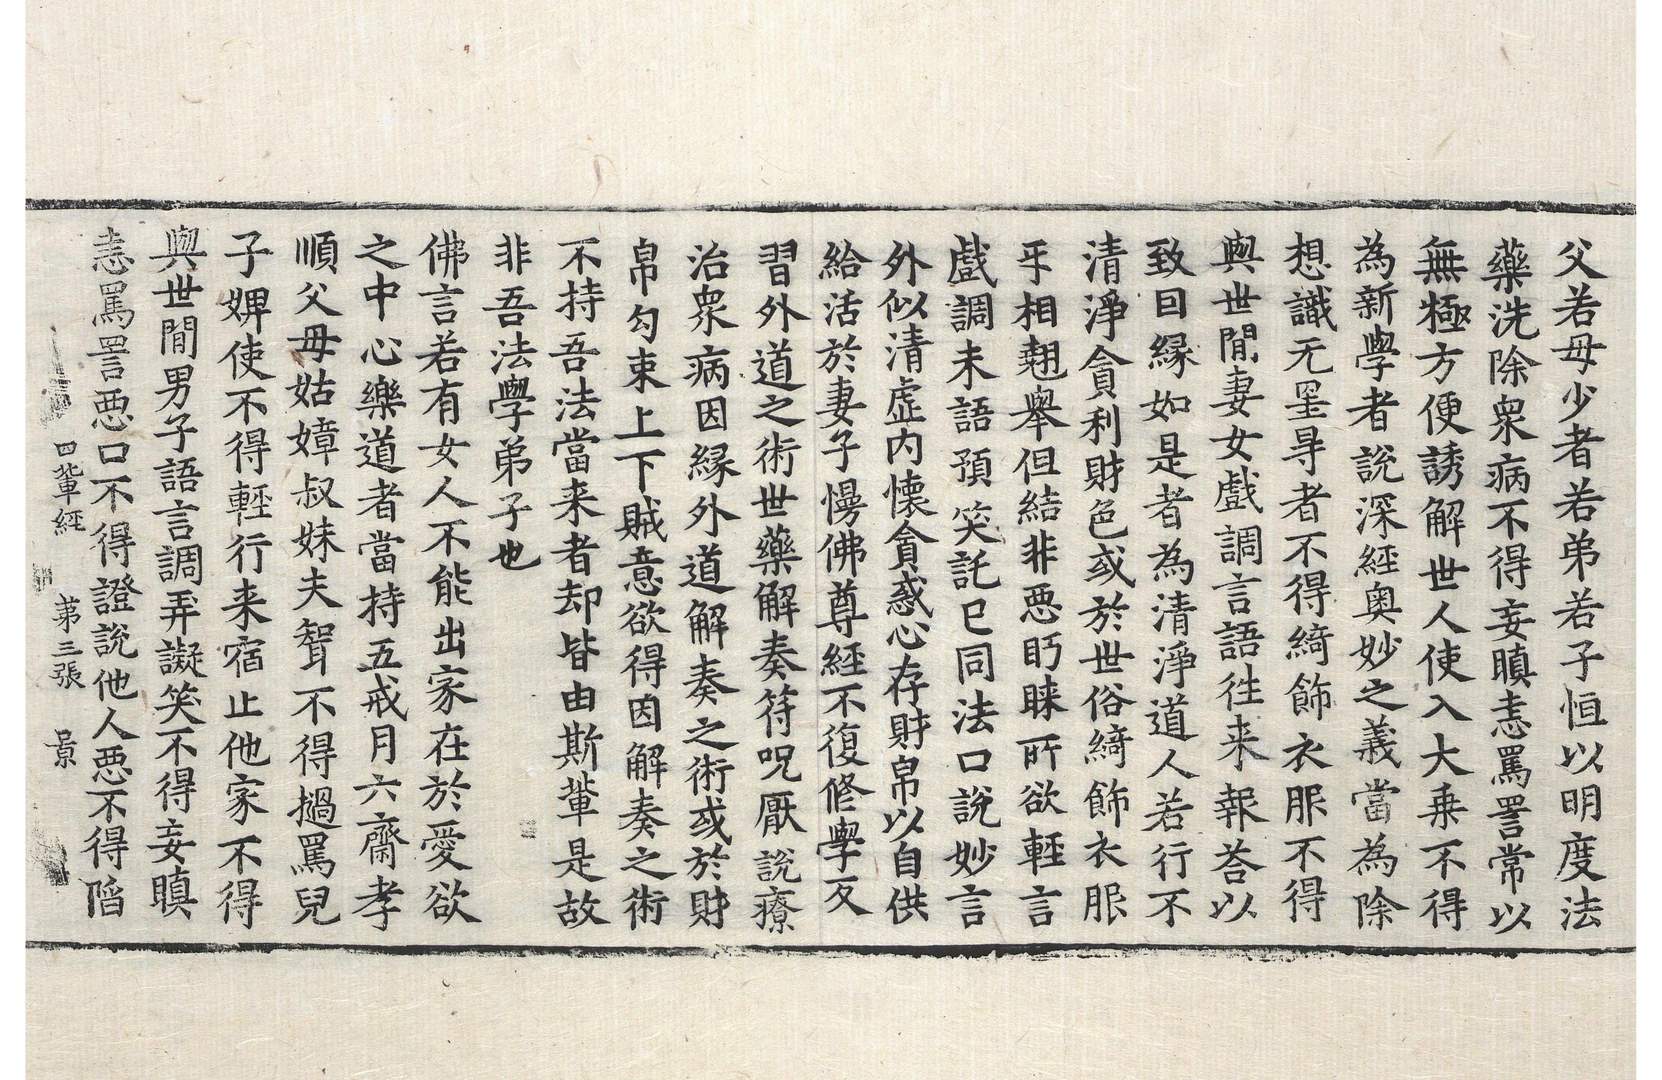 父若母少者若弟若子恒以明度法
藥洗除衆病不得妄瞋恚罵詈常以
無極方便誘解世人使入大乗不得
為新學者說深經奥妙之義當為除
想識无罣㝵者不得綺飾衣服不得
與世閒妻女戲調言語往来報荅以
致囙縁如是者為清淨道人若行不
清淨貪利財色或於世俗綺飾衣服
乎相翹舉但結非惡眄睞所欲輕言
戲調未語預笑託巳同法口說妙言
外似清虛内懐貪惑心存財帛以自供
給活於妻子慢佛尊經不復修學反
習外道之術世藥解奏符呪厭說療
治衆病因縁外道解奏之術或於財
帛勾束上下賊意欲得因解奏之術
不持吾法當来者却皆由斯軰是故
非吾法學弟子也
佛言若有女人不能出家在於愛欲
之中心樂道者當持五戒月六齋孝
順父母姑嫜叔妹夫聟不得撾罵兒
子婢使不得輕行来宿止他家不得
與世閒男子語言調弄譺笑不得妄瞋
四軰經 第三張 景
恚罵詈惡口不得證說他人惡不得䧟